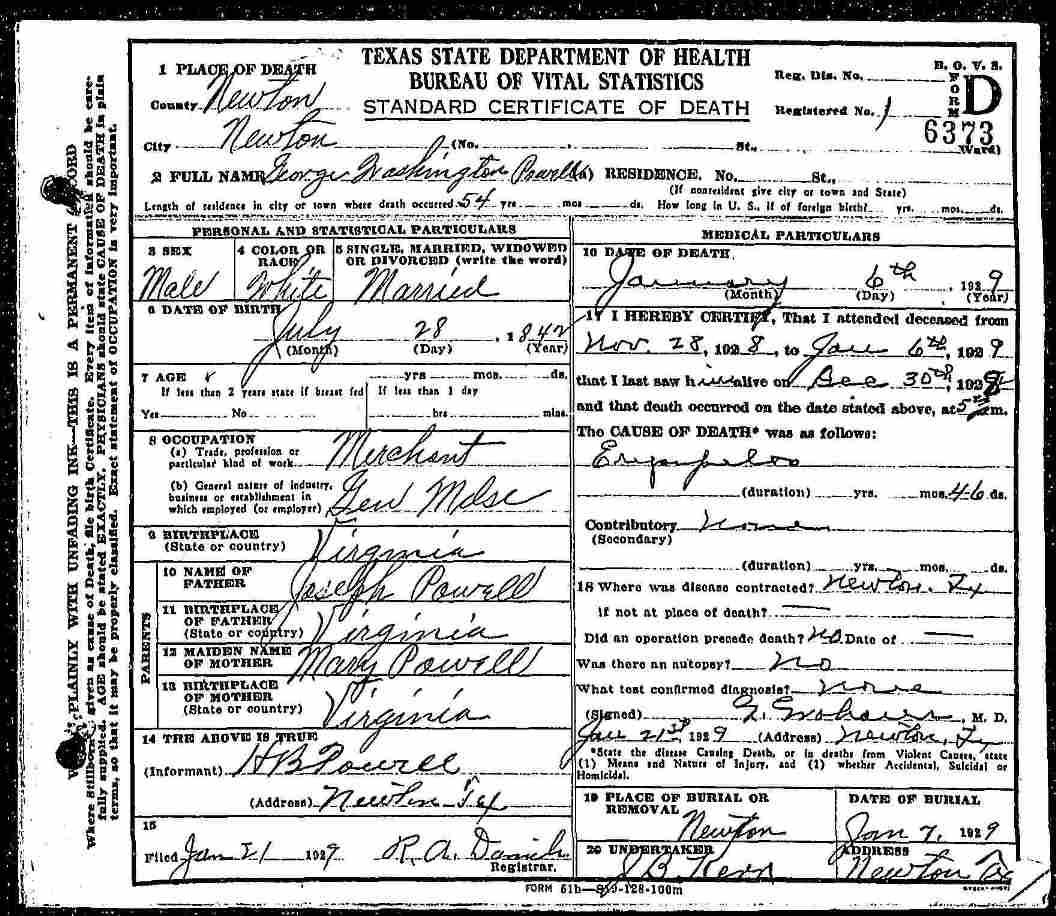 TEXAS STATE DEPARTMENT OF HEALTH
BUREAU OF VITAL STATISTICS
STANDARD CERTIFICATE OF DEATH
B. O. V. S.
FORM D
Reg. Dis. No.
Registered No. 1
6373
1 PLACE OF DEATH
County Newton
City Newton (No. St., Ward)
2 FULL NAME George Washington Powell (a) RESIDENCE. No. St.,
(If nonresident give city or town and State)
Length of residence in city or town where death occurred 54 yrs. mos. ds. How long in U. S., if of foreign birth? yrs. mos. ds.
PERSONAL AND STATISTICAL PARTICULARS
3 SEX
Male
4 COLOR OR RACE
White
5 SINGLE, MARRIED, WIDOWED
OR DIVORCED (write the word)
Married
6 DATE OF BIRTH
July 28, 1842
(Month) (Day) (Year)
7 AGE yrs. mos. ds.
If less than 2 years state if breast fed
Yes No
If less than 1 day
hrs mins.
8 OCCUPATION
(a) Trade, profession or
particular kind of work Merchant
(b) General nature of industry,
business or establishment in
which employed (or employer) Gen Mdse
9 BIRTHPLACE
(State or country) Virginia
PARENTS
10 NAME OF
FATHER Joseph Powell
11 BIRTHPLACE
OF FATHER
(State or country) Virginia
12 MAIDEN NAME
OF MOTHER Mary Powell
13 BIRTHPLACE
OF MOTHER
(State or country) Virginia
14 THE ABOVE IS TRUE
(Informant) H B Powell
(Address) Newton Tex
15
Filed Jan 21 1929 R. A.
Registrar.
MEDICAL PARTICULARS
16 DATE OF DEATH
January 6th, 1929
(Month) (Day) (Year)
17 I HEREBY CERTIFY, That I attended deceased from
Nov. 28, 1928, to Jan 6th, 1929
that I last saw him alive on Dec 30th, 192
and that death occurred on the date stated above, at 5 m.
The CAUSE OF DEATH* was as follows:
(duration) yrs. mos. ds.
Contributory None
(Secondary)
(duration) yrs. mos. ds.
18 Where was disease contracted? Newton. Tx
if not at place of death? —
Did an operation precede death? No Date of —
Was there an autopsy? No
What test confirmed diagnosis? None
(Signed) M. D.
Jan 21st 1929 (Address) Newton, Tx
*State the disease Causing Death, or in deaths from Violent Causes, state
(1) Means and Nature of Injury, and (2) whether Accidental, Suicidal or
Homicidal.
19 PLACE OF BURIAL OR
REMOVAL
Newton
DATE OF BURIAL
Jan 7, 1929
20 UNDERTAKER
J B Kerr
ADDRESS
Newton Tex
FORM 61b
PLAINLY WITH UNFADING INK—THIS IS A PERMANENT RECORD
given as cause of Death, file birth Certificate. Every item of information should be care-
fully supplied. AGE should be stated EXACTLY. PHYSICIANS should state CAUSE OF DEATH in plain
terms, so that it may be properly classified. Exact statement of OCCUPATION is very important.